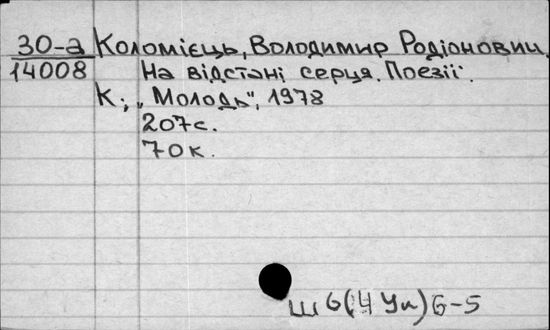 30-а Коломієць, Володимир Родіонович.
14008 На відстані серця. Поезії.
К., „Молодь", 1978
207с.
70к.
Ш6(4Ук)6-5